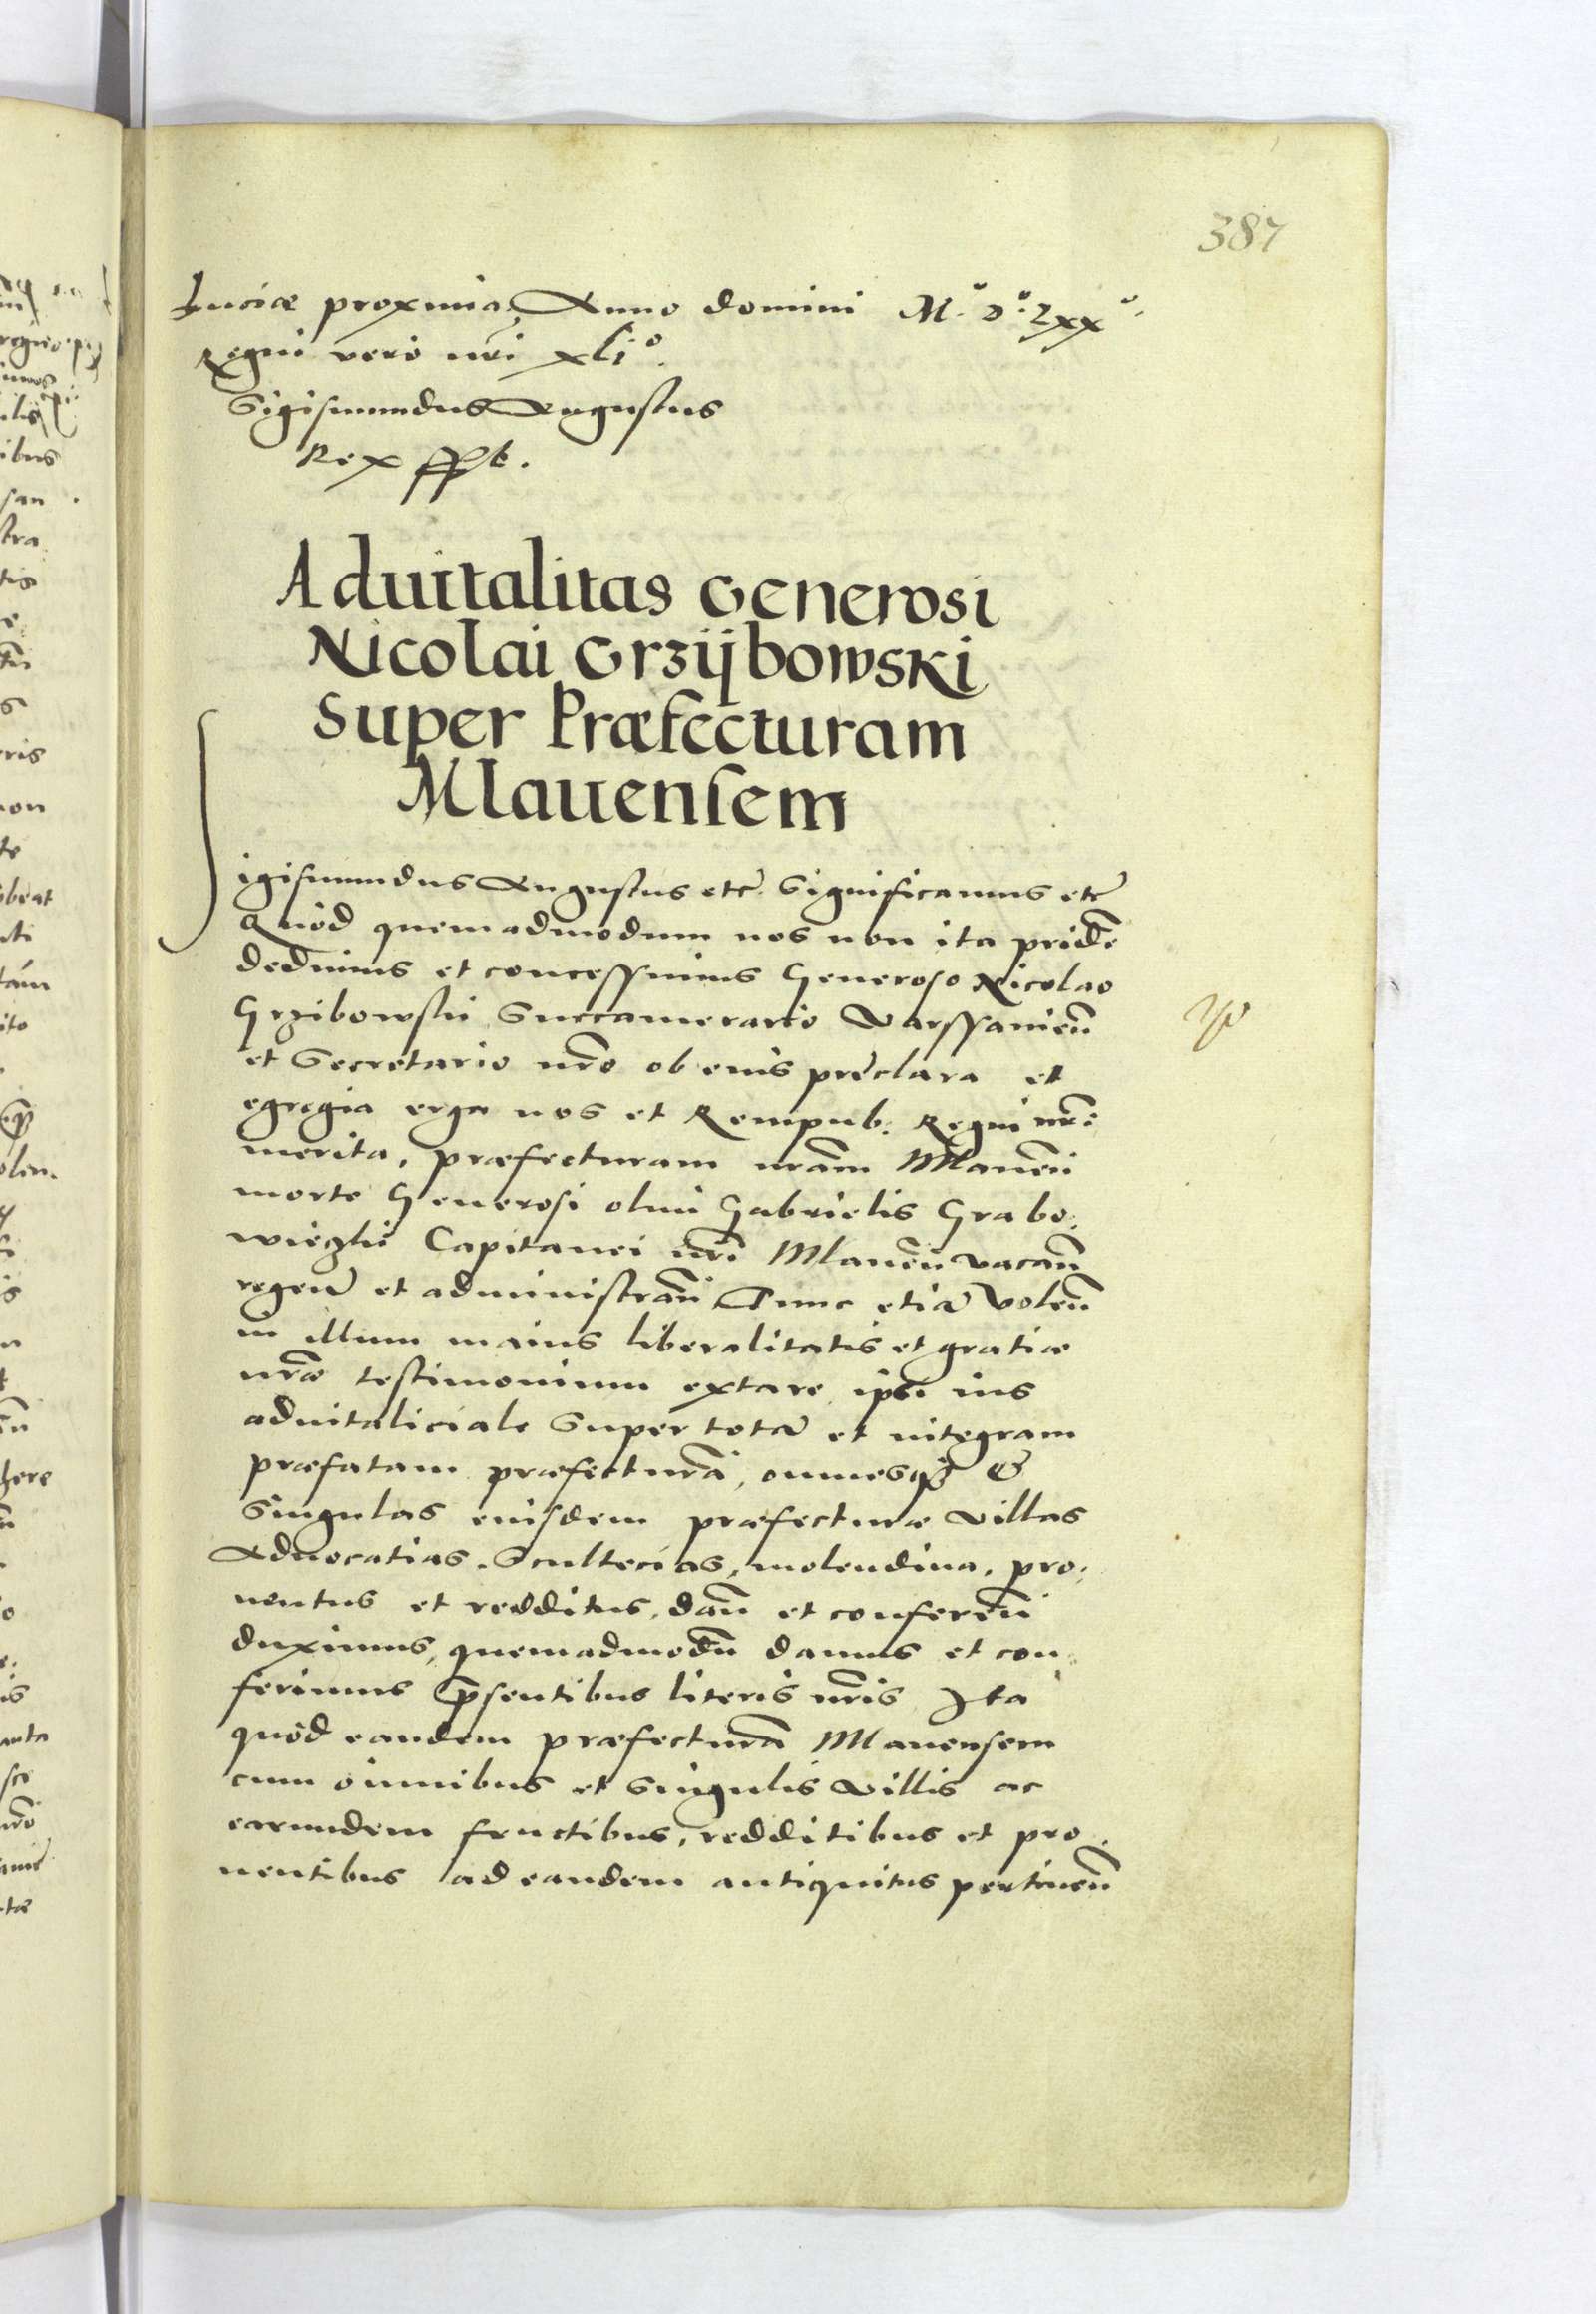 387
Luciæ proxima, Anno domini M.° D.° Lxx°.
Regni vero nrī xli°.
Sigismundus Augustus
Rex sspt.
Aduitalitas Generosi
Nicolai Grzÿbowski
Super Præfecturam
Mlauensem
Sigismundus Augustus etc̃. Significamus etc̃
Quod quemadmodum nos non ita pridẽ
dedimus et concessimus Generoso Nicolao
Grzibowski Succamerario Varssauieñ
et Secretario nrõ ob eius preclara et
egregia erga nos et Rempub: Regni nrĩ
merita, præfecturam nrãm Mlaueñ
morte Generosi olim Gabrielis Grabo:
wiezki Capitanei nrĩ Mlaueñ vacañ
regeñ et administrañ, Tunc etiã Voleñ
in illum maius liberalitatis et gratiæ
nræ testimonium extare, ipsi ius
aduitaliciale Super totã et integram
præfatam præfecturã, omnesq3 &
Singulas eiusdem præfecturæ Villas
Aduocatias, Scultecias, molendina, pro:
uentus et redditus, dañ et confereñ
duximus, quemadmodũ damus et con:
ferimus p̃sentibus literis nrĩs Ita
quod eandem præfecturã Mlauensem
cum omnibus et Singulis Villis ac
earundem fructibus, redditibus et pro:
uentibus ad eandem antiquitus pertineñ